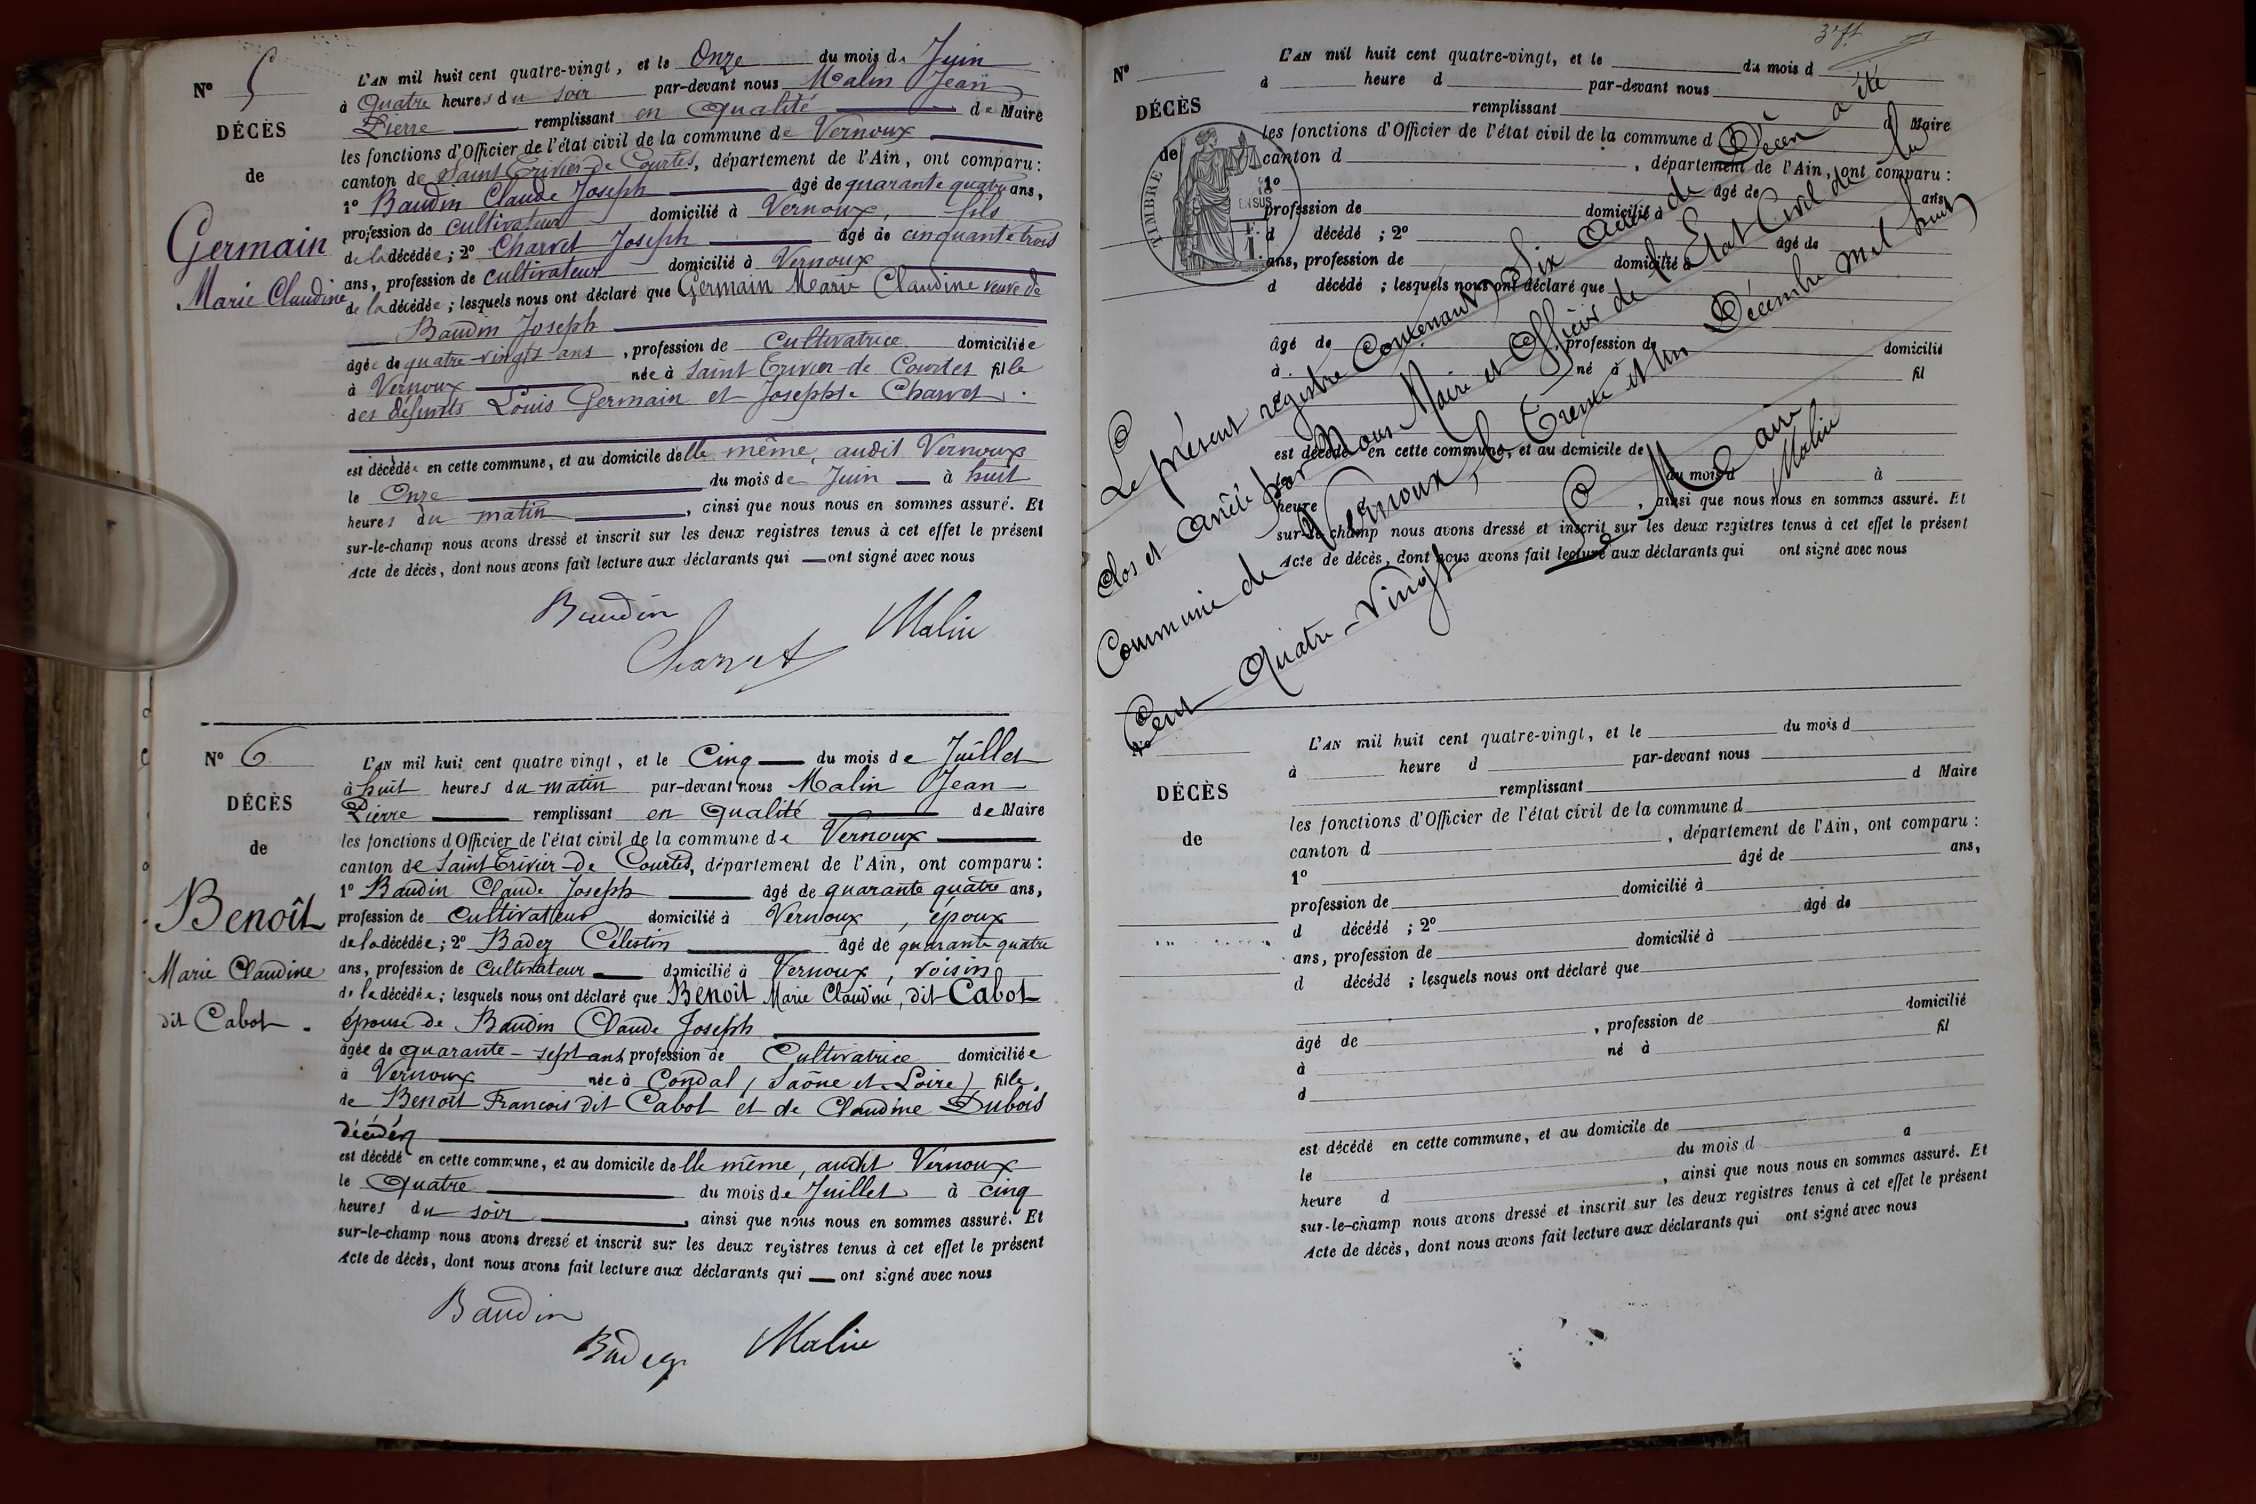 Nº 5
DÉCÈS
de
Germain
Marie Claudine
L'AN mil huit cent quatre-vingt, et le Onze du mois de Juin
à Quatre heures du soir par-devant nous Malin Jean
Pierre remplissant en qualité de Maire
les fonctions d'Officier de l'état civil de la commune de Vernoux
canton de Saint Trivier-de Courtes, département de l'Ain, ont comparu :
1º Baudin Claude Joseph âgé de quarante quatre ans,
profession de cultivateur domicilié à Vernoux, fils
de la décédée ; 2º Charvet Joseph âgé de cinquante trois
ans, profession de cultivateur domicilié à Vernoux
de la décédée ; lesquels nous ont déclaré que Germain Marie Claudine veuve de
Baudin Joseph
âgée de quatre-vingts ans, profession de Cultivatrice domiciliée
à Vernoux née à Saint Trivier-de Courtes fille
des défunts Louis Germain et Josephte Charvet.
est décédée en cette commune, et au domicile delle même, audit Vernoux
le Onze du mois de Juin à huit
heures du matin, ainsi que nous nous en sommes assuré. Et
sur-le-champ nous avons dressé et inscrit sur les deux registres tenus à cet effet le présent
Acte de décès, dont nous avons fait lecture aux déclarants qui ont signé avec nous
Baudin
Charvet Malin
Nº 6
DÉCÈS
de
Benoît
Marie Claudine
dit Cabot.
L'AN mil huit cent quatre vingt, et le Cinq du mois de Juillet
à huit heures du matin par-devant nous Malin Jean
Pierre remplissant en qualité de Maire
les fonctions d'Officier de l'état civil de la commune de Vernoux
canton de Saint Trivier-de Courtes, département de l'Ain, ont comparu :
1º Baudin Claude Joseph âgé de quarante quatre ans,
profession de Cultivateur domicilié à Vernoux, époux
de la décédée ; 2º Badez Célestin âgé de quarante quatre
ans, profession de Cultivateur domicilié à Vernoux, voisin
de la décédée ; lesquels nous ont déclaré que Benoit Marie Claudine, dit Cabot
épouse de Baudin Claude Joseph
âgée de quarante-sept ans profession de Cultivatrice domiciliée
à Vernoux née à Condal (Saône et Loire) fille
de Benoit François dit Cabot et de Claudine Dubois
décédés
est décédé en cette commune, et au domicile delle même, audit Vernoux
le Quatre du mois de Juillet à cinq
heures du soir, ainsi que nous nous en sommes assuré. Et
sur-le-champ nous avons dressé et inscrit sur les deux registres tenus à cet effet le présent
Acte de décès, dont nous avons fait lecture aux déclarants qui ont signé avec nous
Baudin
Badez Malin
Nº
DÉCÈS
de
TIMBRE
L'AN mil huit cent quatre-vingt, et le du mois d
à heure d par-devant nous
remplissant d Maire
les fonctions d'Officier de l'état civil de la commune d
canton d, département de l'Ain, ont comparu :
1º âgé de ans,
profession de domicilié à
d décédé ; 2º âgé de
ans, profession de domicilié à
d décédé ; lesquels nous ont déclaré que
âgé de profession de domicilié
à né à fil
est décédé en cette commune, et au domicile de
le du mois d à
heure, ainsi que nous nous en sommes assuré. Et
sur-le-champ nous avons dressé et inscrit sur les deux registres tenus à cet effet le présent
Acte de décès, dont nous avons fait lecture aux déclarants qui ont signé avec nous
Le présent registre Contenant Six Actes de Décès a été
clos et arrêté par Nous Maire et Officier de l'Etat Civil de la
Commune de Vernoux, le Trente et un Décembre mil huit
Cent Quatre-Vingt
Le Maire
Malin
Nº
DÉCÈS
de
L'AN mil huit cent quatre-vingt, et le du mois d
à heure d par-devant nous
remplissant d Maire
les fonctions d'Officier de l'état civil de la commune d
canton d, département de l'Ain, ont comparu :
1º âgé de ans,
profession de domicilié à
d décédé ; 2º âgé de
ans, profession de domicilié à
d décédé ; lesquels nous ont déclaré que
âgé de, profession de domicilié
à né à fil
d
est décédé en cette commune, et au domicile de
le du mois d à
heure d, ainsi que nous nous en sommes assuré. Et
sur-le-champ nous avons dressé et inscrit sur les deux registres tenus à cet effet le présent
Acte de décès, dont nous avons fait lecture aux déclarants qui ont signé avec nous